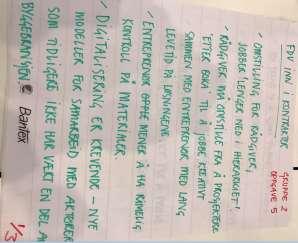 FDV INN I KONTRAKTER
GRUPPE 2
OPPGAVE 5
✓ OMSTILLING FOR RÅDGIVER;
JOBBER LENGER NED I HIERARKIET.
✓ RÅDGIVER MÅ OMSTILLE FRA Å PROSJEKTERE
ETTER BEHA TIL Å JOBBE KREATIVT
SAMMEN MED ENTREPRENØR MED LANG
LEVETID PÅ LØSNINGENE
✓ ENTREPRENØR OPPGIR MENER Å HA RIMELIG
KONTROLL PÅ MATERIALER
✓ DIGITALISERING ER KREVENDE – NYE
MODELLER FOR SAMARBEID MED AKTØRER
SOM TIDLIGERE IKKE HAR VÆRT EN DEL A
BYGGEBRANSJEN
Bantex
1/3